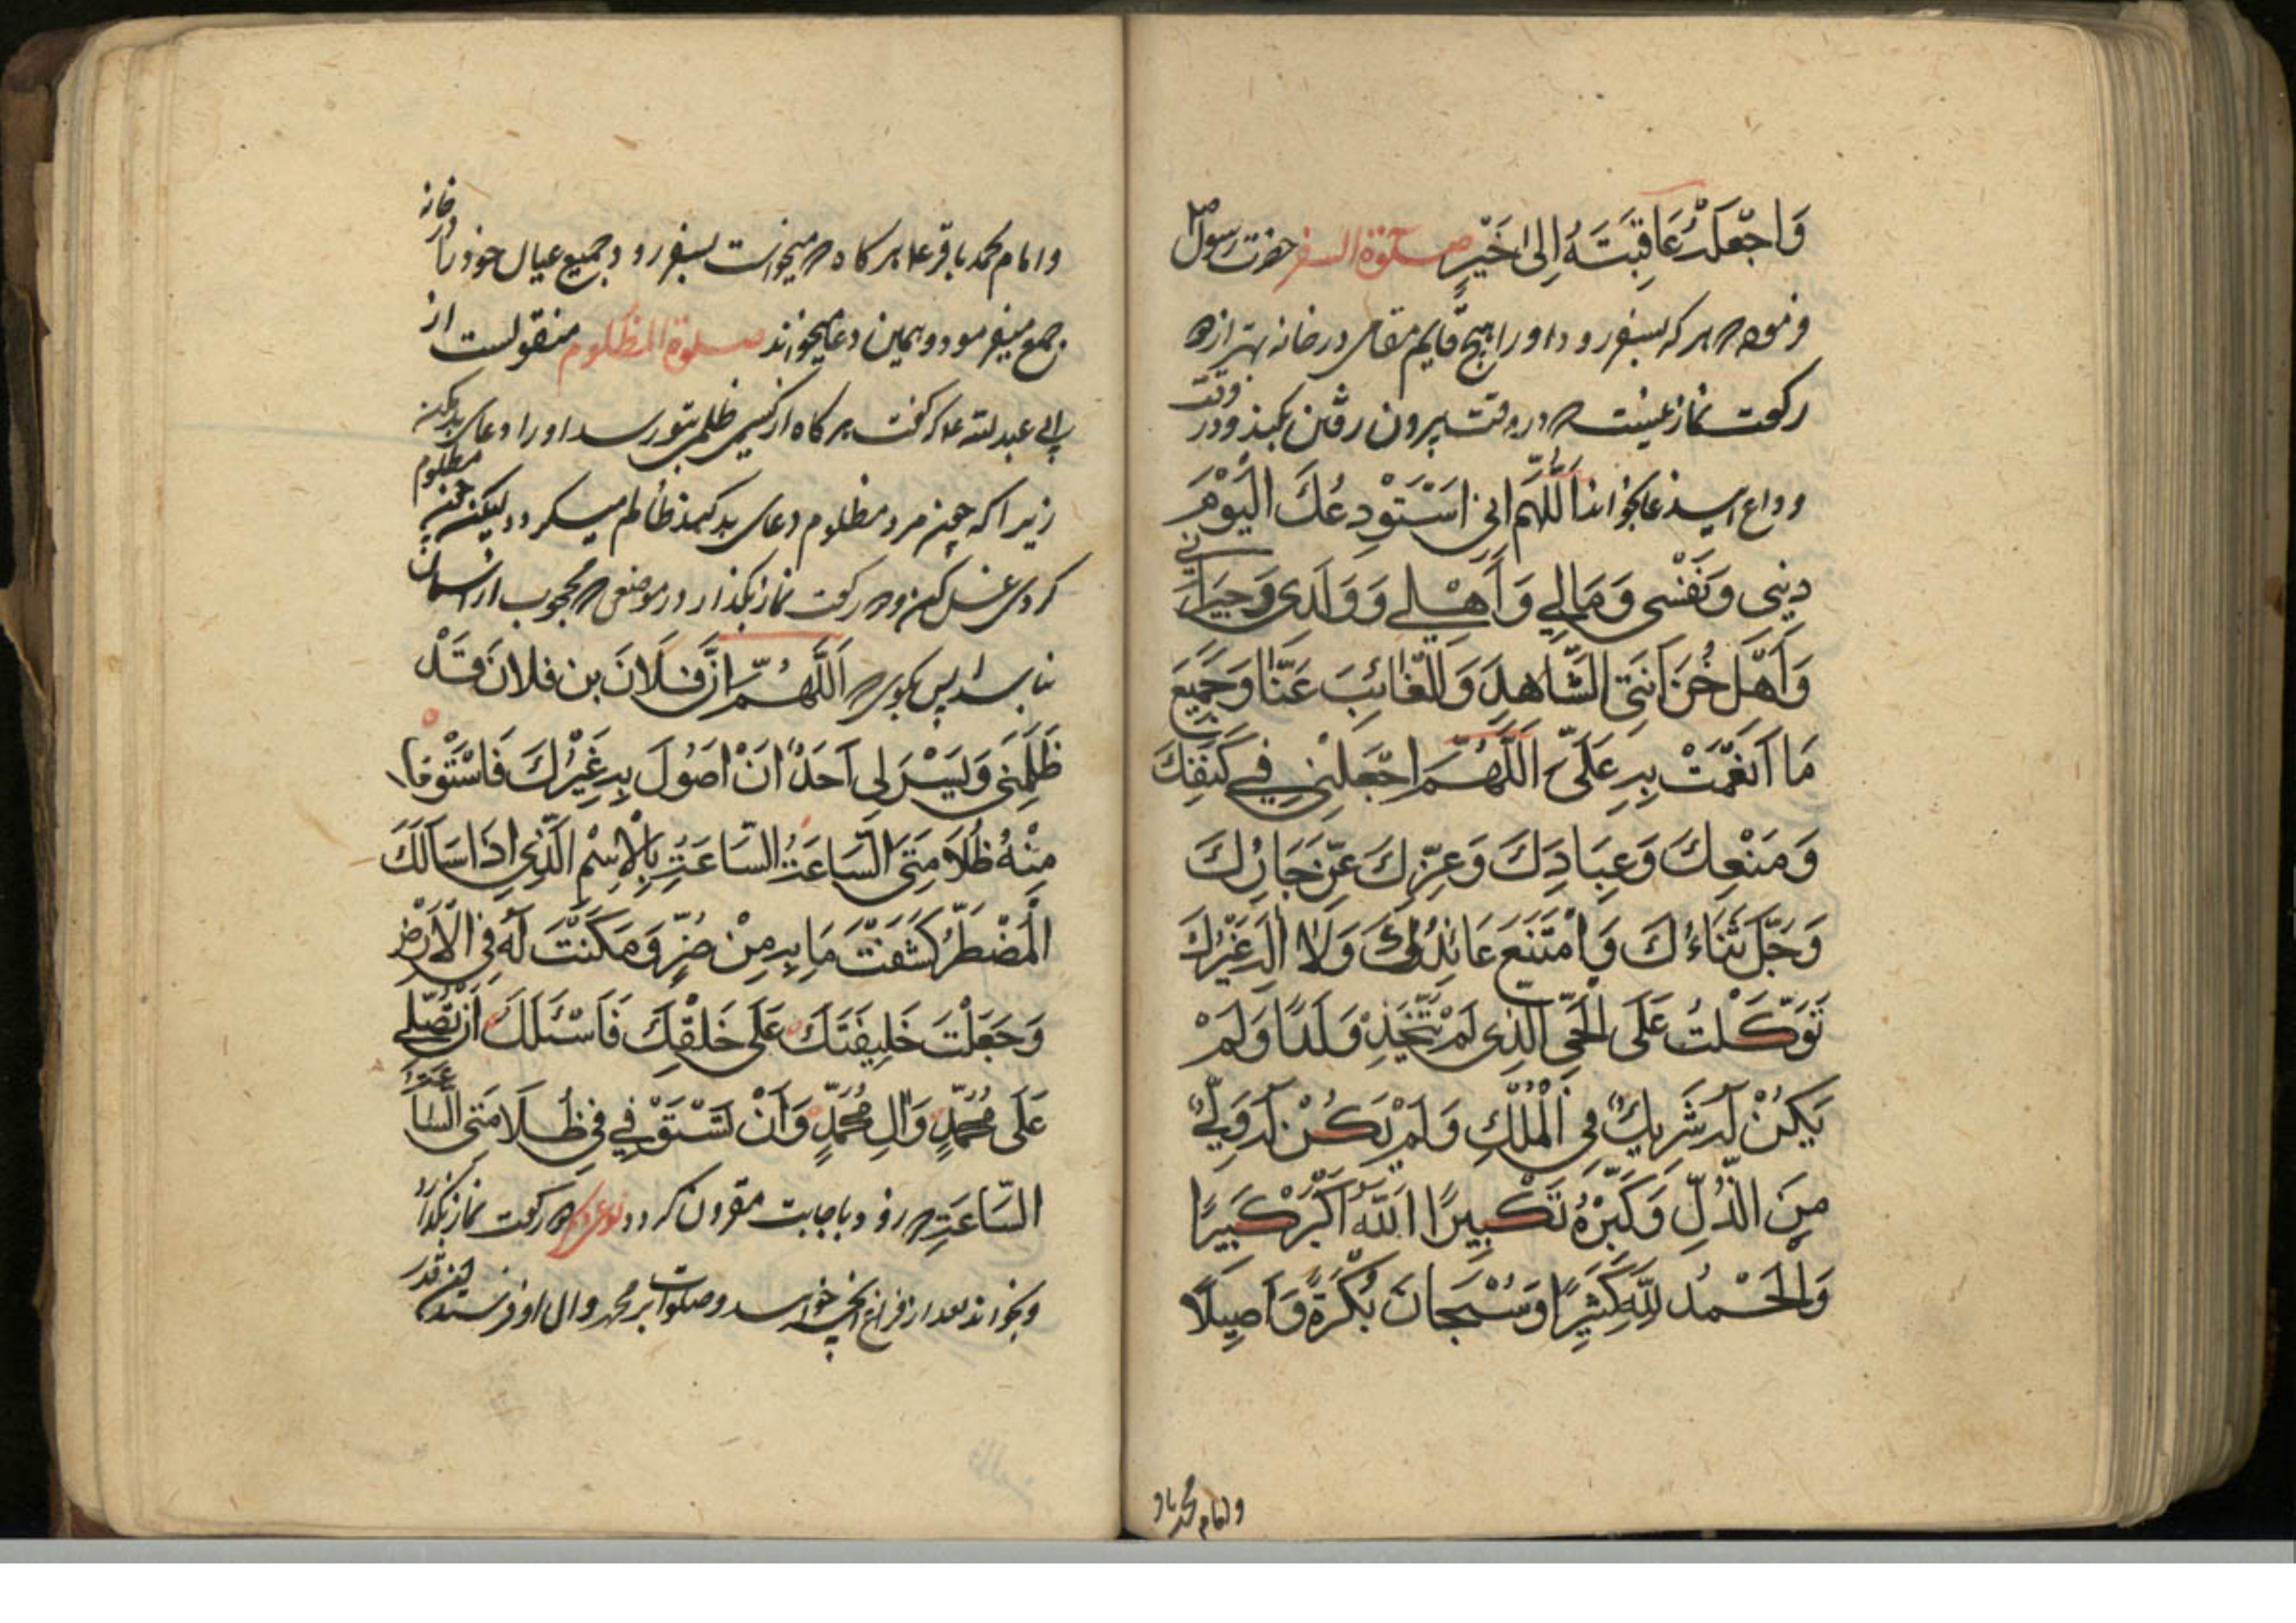 وَاجْعَلْ عَاقِبَتَهُ إِلىٰ خَيْرٍ صلوة السفر حضرت رسول ص
فرموده هر که بسفر رود او را هیچ قایم مقامی در خانه بهتر از
رکعت نماز نیست در وقت بیرون رفتن بکند و در وقت
وداع این دعا بخواند اَللَّهُمَّ اِنّي اَسْتَوْدِعُكَ الْيَوْمَ
دِينِي وَنَفْسِي وَمَالِي وَأَهْلِي وَوَلَدِي وَجِيرَانِي
وَأَهْلَ حُزَانَتِي الشَّاهِدَ وَالْغَائِبَ عَنَّا وَجَمِيعَ
مَا اَنْعَمْتَ بِهِ عَلَيَّ اَللَّهُمَّ اجْعَلْنِي فِي كَنَفِكَ
وَمَنْعِكَ وَعِبَادِكَ وَعِزِّكَ عَزَّ جَارُكَ
وَجَلَّ ثَنَاءُكَ وَامْتَنَعَ عَائِذُكَ وَلَا اِلَهَ غَيْرُكَ
تَوَكَّلْتُ عَلَى الْحَيِّ الَّذِي لَمْ يَتَّخِذْ وَلَدًا وَلَمْ
يَكُنْ لَهُ شَرِيكٌ فِي الْمُلْكِ وَلَمْ يَكُنْ لَهُ وَلِيٌّ
مِنَ الذُّلِّ وَكَبِّرْهُ تَكْبِيرًا اَللَّهُ اَكْبَرُ كَبِيرًا
وَالْحَمْدُ لِلَّهِ كَثِيرًا وَسُبْحَانَ بُكْرَةً وَاَصِيلًا
و امام محمد باقر
و امام محمد باقر ع هر کاه میخواست بسفر رود جمیع عیال خود را در خانه
جمع میفرمود و همین دعا میخواند صلوة المظلوم منقولست از
ابی عبدالله ع که کفت هر کاه از کسی ظلمی بتو رسد او را دعای بد مکن
زیرا که چون مرد مظلوم دعای بد کند ظالم میکردد لیکن چون مظلوم
کردی غسل کن و رکعت نماز بکذار در موضعی محجوب از آسمان
نباشد پس بکوی اَللَّهُمَّ اِنَّ فُلَانَ بن فلان قَدْ
ظَلَمَنِي وَلَيْسَ لِي اَحَدٌ اَنْ اَصُولَ بِهِ غَيْرُكَ فَاسْتَوْفِ
مِنْهُ ظُلَامَتِي السَّاعَةَ السَّاعَةِ بِالْاِسْمِ الَّذِي اِذَا سَاَلَكَ
الْمُضْطَرُّ كَشَفْتَ مَا بِهِ مِنْ ضُرٍّ وَمَكَّنْتَ لَهُ فِي الْاَرْضِ
وَجَعَلْتَ خَلِيفَتَكَ عَلَى خَلْقِكَ فَاَسْئَلُكَ اَنْ تُصَلِّي
عَلَى مُحَمَّدٍ وَآلِ مُحَمَّدٍ وَاَنْ تَسْتَوْفِي فِي ظُلَامَتِي السَّاعَةَ
السَّاعَةِ زود باجابت مقرون کردد نوع دیکر رکعت نماز بکذارد
و بخواند بعد از فراغ آنچه خواهد و صلوات بر محمد و آل او فرستد این قدر